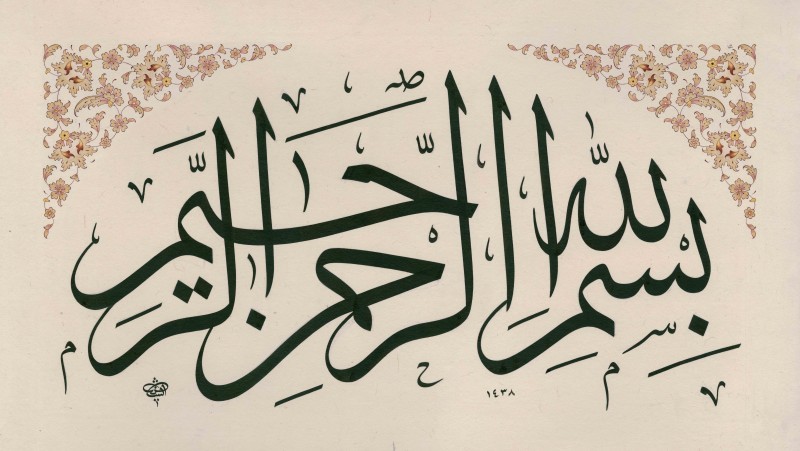 بِسْمِ اللّٰهِ الرَّحْمٰنِ الرَّحِيْمِ
١٤٣٨